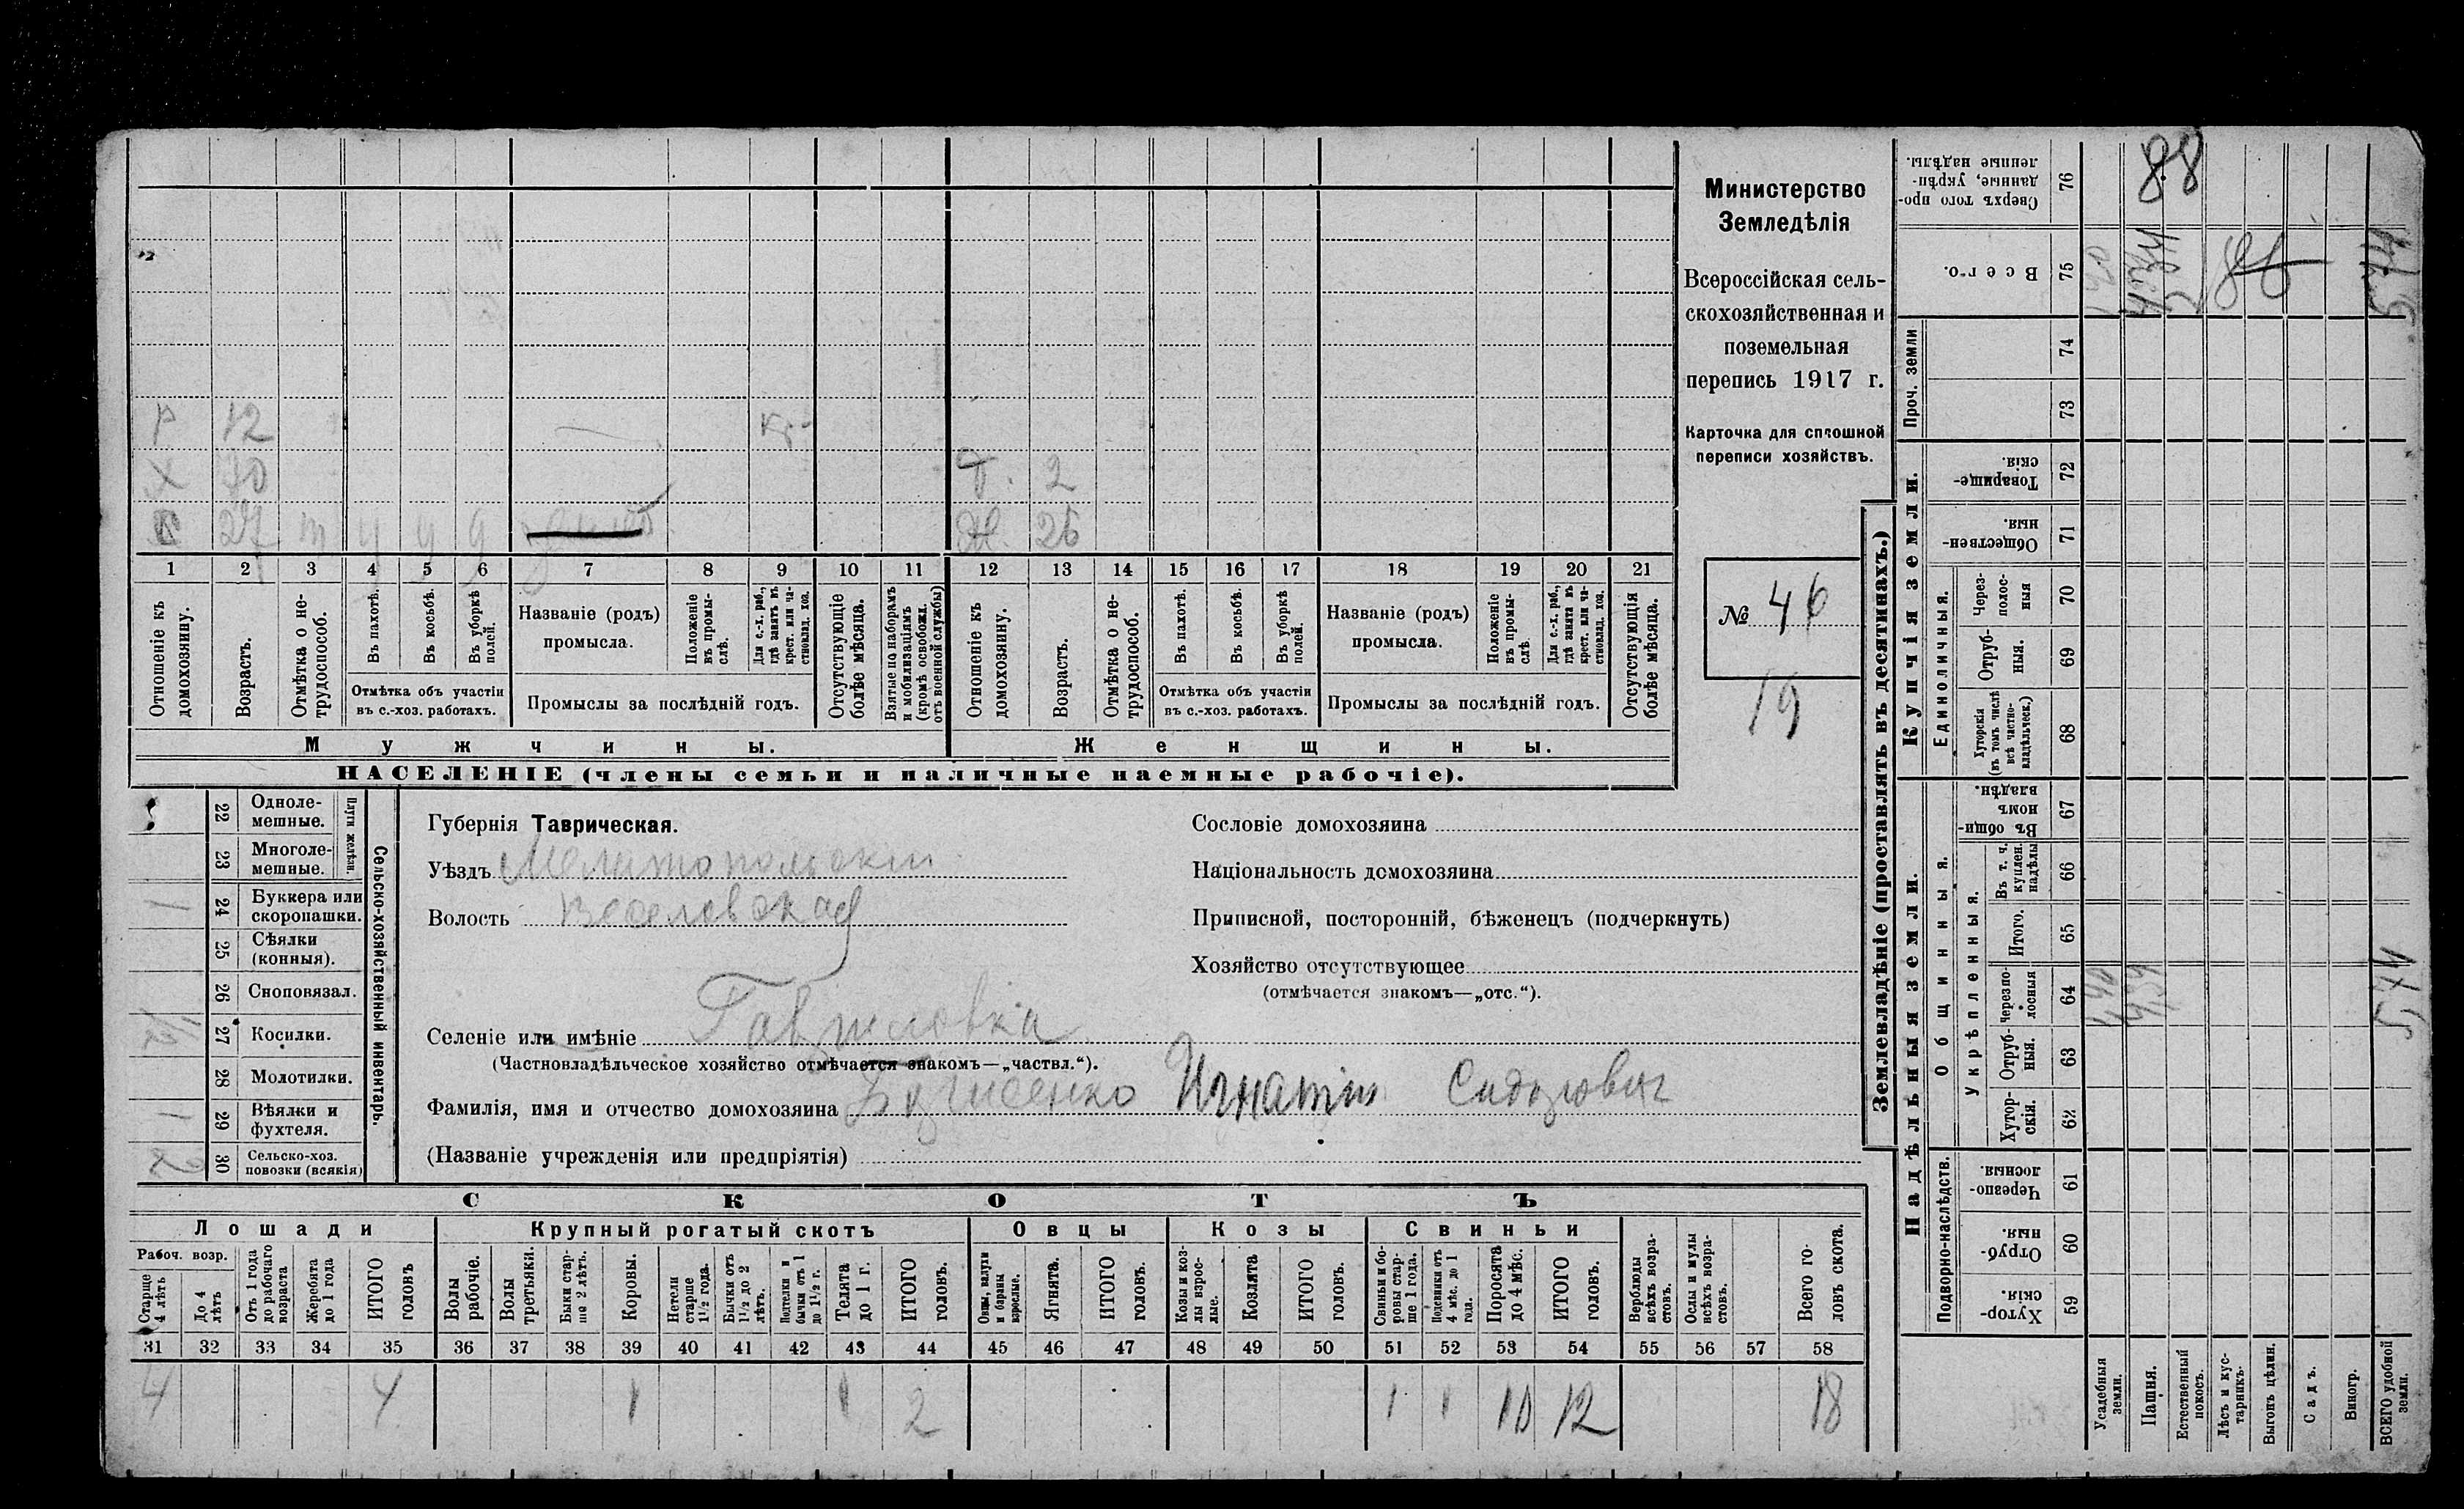 Р 12 Кр.
Х 40 Д. 2
27 Ж. 26
1 2 3 4 5 6 7 8 9 10 11 12 13 14 15 16 17 18 19 20 21
Отношеніе къ домохозяину.
Возрастъ.
Отмѣтка о не-
трудоспособ.
Въ пахотѣ.
Въ косьбѣ.
Въ уборкѣ
полей.
Отмѣтка объ участіи
въ с.-хоз. работахъ.
Названіе (родъ)
промысла.
Положеніе
въ промы-
слѣ.
Для с.-х. раб.,
гдѣ занятъ въ
крест. или ча-
стновлад. хоз.
Промыслы за послѣдній годъ.
Отсутствующіе
болѣе мѣсяца.
Взятые по наборамъ
и мобилизаціямъ
(кромѣ освобожд.
отъ военной службы)
Отношеніе къ
домохозяину.
Возрастъ.
Отмѣтка о не-
трудоспособ.
Въ пахотѣ.
Въ косьбѣ.
Въ уборкѣ
полей.
Отмѣтка объ участіи
въ с.-хоз. работахъ.
Названіе (родъ)
промысла.
Положеніе
въ промы-
слѣ
Для с.-х. раб.,
гдѣ занята въ
крест. или ча-
стновлад. хоз.
Промыслы за послѣдній годъ.
Отсутствующія
болѣе мѣсяца.
Мужчины.
Женщины.
НАСЕЛЕНІЕ (члены семьи и наличные наемные рабочіе).
Министерство
Земледѣлія
Всероссійская сель-
скохозяйственная и
поземельная
перепись 1917 г.
Карточка для сплошной
переписи хозяйствъ.
№ 46
19
22 Одноле-
мешные.
23 Многоле-
мешные.
Плуги желѣзн.
24 Буккера или
скоропашки.
25 Сѣялки
(конныя).
26 Сноповязал.
27 Косилки.
28 Молотилки.
29 Вѣялки и
фухтеля.
30 Сельско-хоз.
повозки (всякія)
Сельско-хозяйственный инвентарь.
Губернія Таврическая.
Уѣздъ Мелитопольскій
Волость Веселовская
Селеніе или имѣніе Гавриловка
(Частновладѣльческое хозяйство отмѣчается знакомъ—„частвл.“).
Фамилія, имя и отчество домохозяина Игнатій Сидорович
(Названіе учрежденія или предпріятія)
Сословіе домохозяина
Національность домохозяина
Приписной, посторонній, бѣженецъ (подчеркнуть)
Хозяйство отсутствующее
(отмѣчается знакомъ—„отс.“).
СКОТЪ
Лошади
Крупный рогатый скотъ
Овцы
Козы
Свиньи
Рабоч. возр.
Старше
4 лѣтъ
До 4
лѣтъ
Отъ 1 года
до рабочаго
возраста
Жеребята
до 1 года
ИТОГО
головъ
Волы
рабочіе.
Волы
третьяки.
Быки стар-
ше 2 лѣтъ.
Коровы.
Нетели
старше
1½ года.
Бычки отъ
1½ до 2
лѣтъ.
Подтелки и
бычки отъ 1
до 1½ г.
Телята
до 1 г.
ИТОГО
головъ.
Овцы, валухи
и бараны
взрослые.
Ягнята.
ИТОГО
головъ.
Козы и коз-
лы взрос-
лые.
Козлята
ИТОГО
головъ.
Свиньи и бо-
ровы стар-
ше 1 года.
Подсвинки отъ
4 мѣс. до 1
года.
Поросята
до 4 мѣс.
ИТОГО
головъ.
Верблюды
всѣхъ возра-
стовъ.
Ослы и мулы
всѣхъ возра-
стовъ.
Всего го-
ловъ скота.
31 32 33 34 35 36 37 38 39 40 41 42 43 44 45 46 47 48 49 50 51 52 53 54 55 56 57 58
4 4 1 1 2 1 1 10 12 18
Землевладѣніе (проставлять въ десятинахъ.)
Сверхъ того про-
данные, укрѣп-
ленные надѣлы.
76 88
Всего.
75
Проч. земли
74
73
Купчія земли.
Товарище-
скія.
72
Обществен-
ныя.
71
Единоличныя.
Через-
полос-
ныя
70
Отруб-
ныя.
69
Хуторскія
(въ томъ числѣ
всѣ частно-
владѣльческ.)
68
Надѣльныя земли.
Общинныя.
Въ общи-
номъ
владѣн.
67
Укрѣпленныя.
Въ т. ч.
куплен.
надѣлы
66
Итого.
65
Черезпо-
лосныя
64
Отруб-
ныя.
63
Хутор-
скія.
62
Подворно-наслѣдств.
Черезпо-
лосныя.
61
Отруб-
ныя.
60
Хутор-
скія.
59
Усадебныя
земли.
Пашня.
Естественный
покосъ.
Лѣсъ и кус-
тарникъ.
Выгонъ цѣлин.
Садъ.
Виногр.
ВСЕГО удобной
земли.